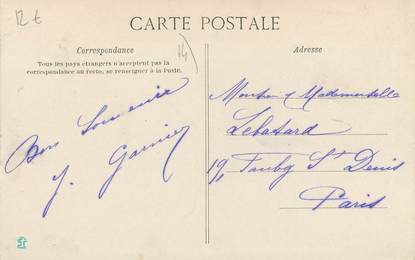 12 €
CARTE POSTALE
14)
Correspondance
Tous les pays étrangers n'acceptent pas la
correspondance au recto, se renseigner à la Poste.
Bon Souvenir
J. Garnier
Adresse
Monsieur & Mademoiselle
Lebatard
19, Faubg St Denis
Paris